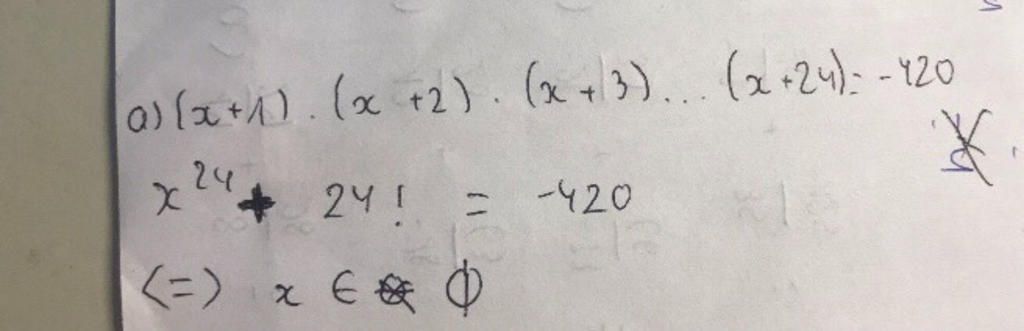 a) (x+1) . (x+2) . (x+3)... (x+24) = -420
x²⁴ + 24! = -420
<=> x ∈ ϕ